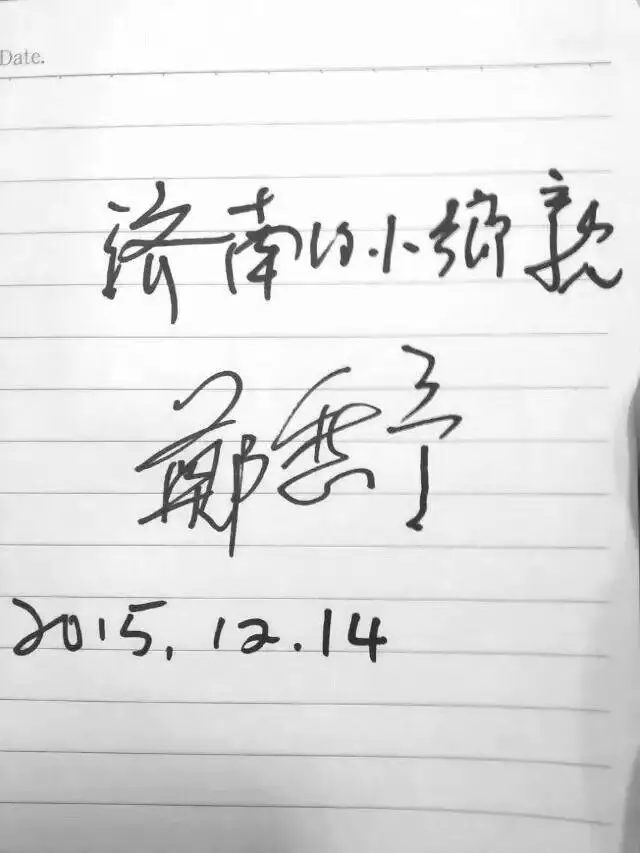 Date.
济南的小鄉親
鄭愁予
2015.12.14